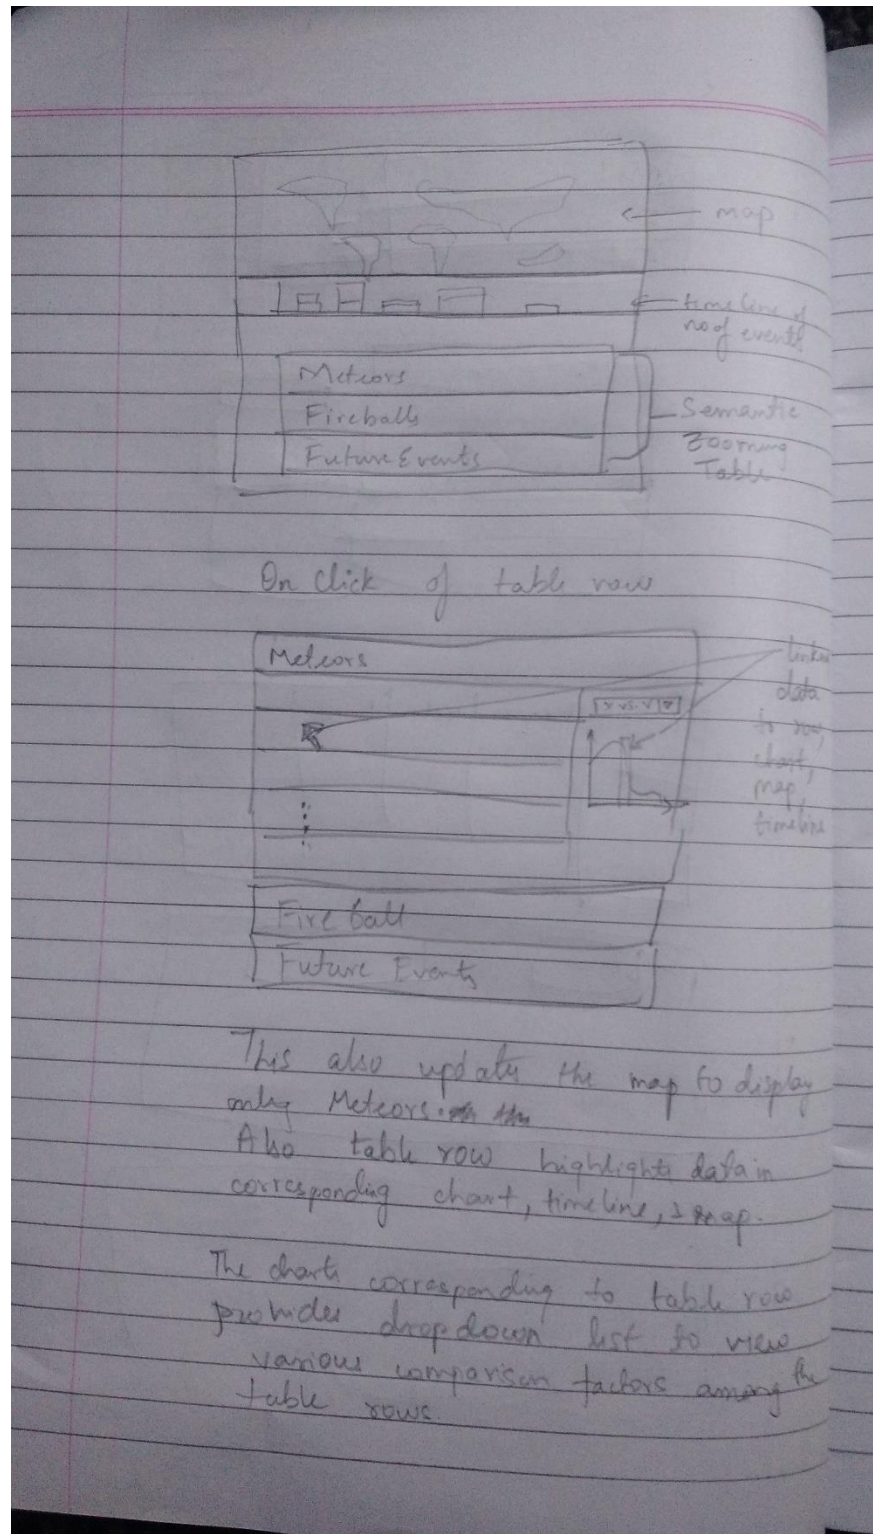 map
timeline of
no of events
Meteors
Fireballs
Future Events
Semantic
Zooming
Table
On Click of table row
Meteors
X vs. Y
linked
data
to row,
chart,
map,
timeline
Fire ball
Future Events
This also updates the map to display
only Meteors.
Also table row highlights data in
corresponding chart, timeline, & map.
The charts corresponding to table row
provides dropdown list to view
various comparison factors among the
table rows.